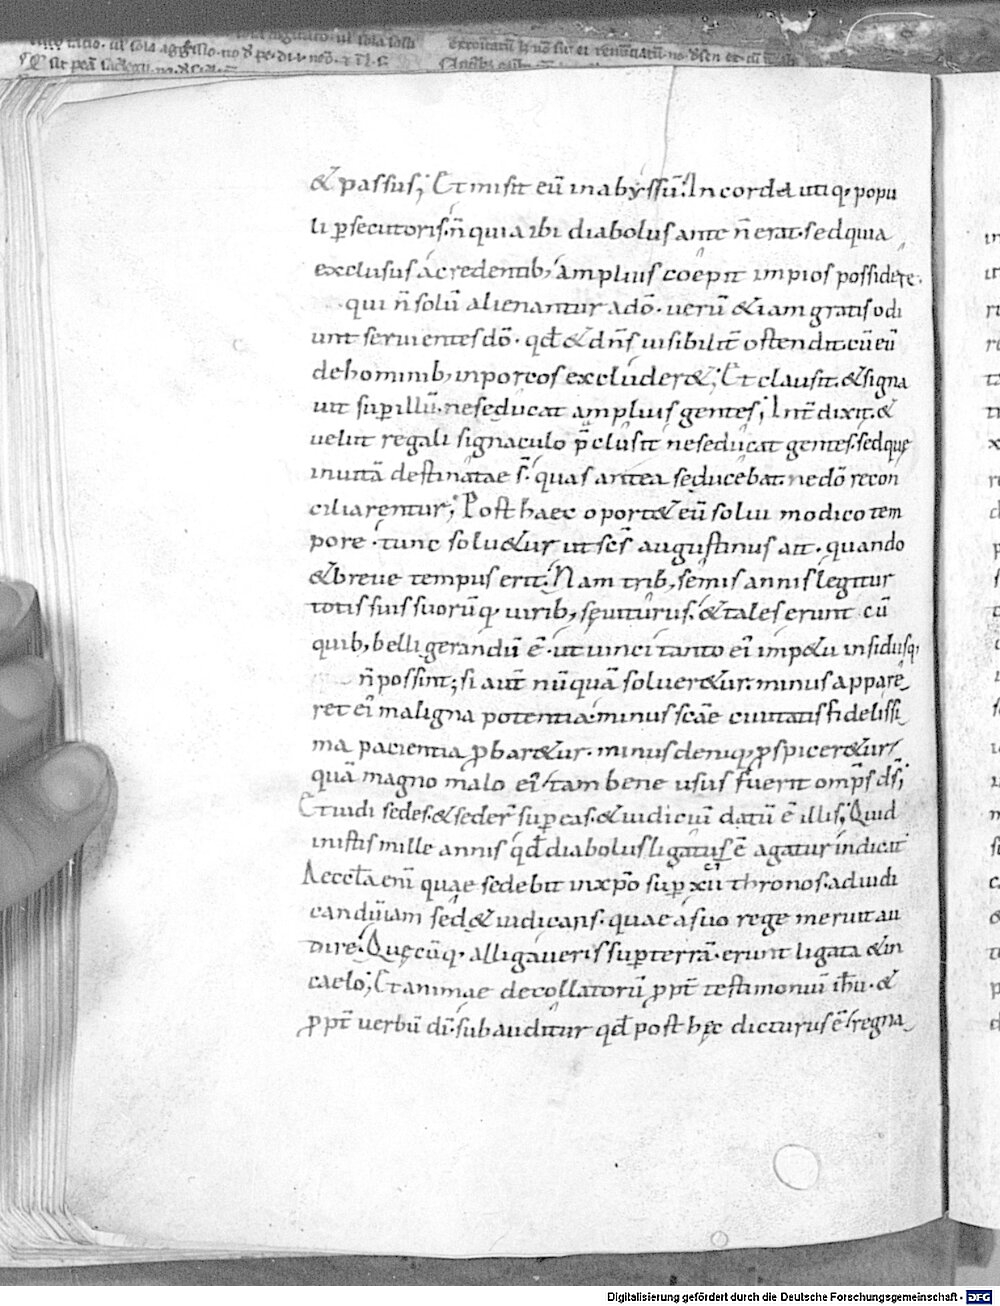 & passus; Et misit eū in abyssū. In corda utiq; popu
li ꝑsecutoris. n̄ quia ibi diabolus ante n̄ erat. sed quia
exclusus a credentib; amplius coepit impios possidere.
qui n̄ solū alienantur a dō. uerū & iam gratis odi
unt seruientes dō. qd̄ & dn̄s uisibilit̄ ostendit. cū eū
de hominib; in porcos excluder&; Et clausit. & signa
uit sup illū. ne seducat amplius gentes; Int̄dixit. &
uelut regali signaculo p̄clusit ne seducat gentes. sed quę
in uitā destinatae s̄. quas antea seducebat. ne dō recon
ciliarentur; Post haec oport& eū solui modico tem
pore. tunc solu&ur ut sc̄s augustinus ait. quando
& breue tempus erit. Nam trib; semis annis legitur
totis suis suorūq; uirib; sęuiturus. & tales erunt cū
quib; belligerandū ē. ut uinci tanto ei impetu insidiisq;
n̄ possint; si aut̄ nūquā soluer&ur. minus appare
ret ei maligna potentia. minus scāe ciuitatis fidelissi
ma pacientia ꝓbar&ur. minus deniq; ꝑspicer&ur
quā magno malo ei tam bene usus fuerit omp̄s ds̄;
Et uidi sedes. & seder̄ sup eas. & iudiciū datū ē illis; Quid
in istis mille annis qd̄ diabolus ligatus ē agatur indicat
Aeccl̄a enī quae sedebit in xp̄o sup xii thronos. ad iudi
candū iam sed& iudicans. quae a suo rege meruit au
dire. Quęcūq; alligaueris sup terrā. erunt ligata & in
caelo; Et animae decollatorū ꝓpt̄ testimoniū ih̄u. &
ꝓpt̄ uerbū dī. subauditur qd̄ post hęc dicturus ē. regna
Digitalisierung gefördert durch die Deutsche Forschungsgemeinschaft - DFG